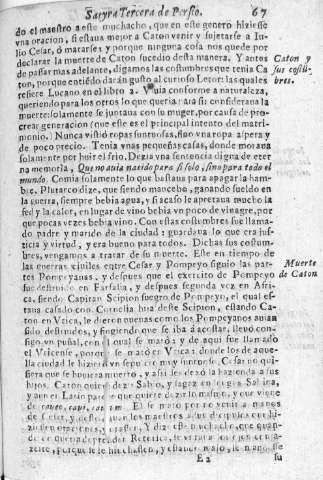 Satyra Tercera de Persio. 67
do el maestro a este muchacho, que en este genero hiziesse
vna oracion, si estaua mejor a Caton venir y sujetarse a Iu-
lio Cesar, ó matarse? y porque ninguna cosa nos quede por
declarar la muerte de Caton sucedio desta manera. Y antes
de passar mas adelante, digamos las costumbres que tenia Ca-
ton, porque entiẽdo darán gusto al curioso Letor: las quales
refiere Lucano en el libro 2. Viuia conforme a naturaleza,
queriendo para los otros lo que queria para si: considerana la
muerte: solamente se juntaua con su muger, por causa de pro-
crear generacion (que este es el principal intento del matri-
monio. Nunca vistió ropas suntuosas, sino vna ropa aspera y
de poco precio. Tenia vnas pequeñas casas, donde moraua
solamente por huir el frio. Dezia vna sentencia digna de eter
na memoria, Que no auia nacido para si solo, sino para todo el
mundo. Comia solamente lo que bastaua para apagar la ham-
bre. Plutarco dize, que siendo mancebo, ganando sueldo en
la guerra, siempre bebia agua, y si acaso le apretaua mucho la
sed y la calor, en lugar de vino bebia vn poco de vinagre, por
que pocas vezes bebia vino. Con estas costumbres fue llama-
do padre y marido de la ciudad: guardaua lo que era jus-
ticia y virtud, y era bueno para todos. Dichas sus costum-
bres, vengamos a tratar de su muerte. Este en tiempo de
las guerras ciuiles entre Cesar y Pompeyo siguio las par-
tes Pompeyanas, y despues que el exercito de Pompeyo
fue destruido en Farsalia, y despues segunda vez en Afri-
ca, siendo Capitan Scipion suegro de Pompeyo, el qual es-
taua casado con Cornelia hija deste Scipion, estando Ca-
ton en Vtica, le dieron nueuas como los Pompeyanos auian
sido destruidos, y fingiendo que se iba á acostar, lleuó con-
sigo vn puñal, con el qual se mató: y de aqui fue llamado
el Vticense, porque se mató en Vtica: donde los de aque-
lla ciudad le hizieron vn sepulcro muy suntuoso. Cesar no qui-
siera que se huuiera muerto, y assi se dexó la hazienda a sus
hijos. Caton quiere dezir Sabio, y sagaz en lengua Sabina,
y aun en Latin parece que quiere dezir lo mismo, y que viene
de
Cesar,
E 2 su
Caton y
sus costũ-
bres.
Muerte
de Caton